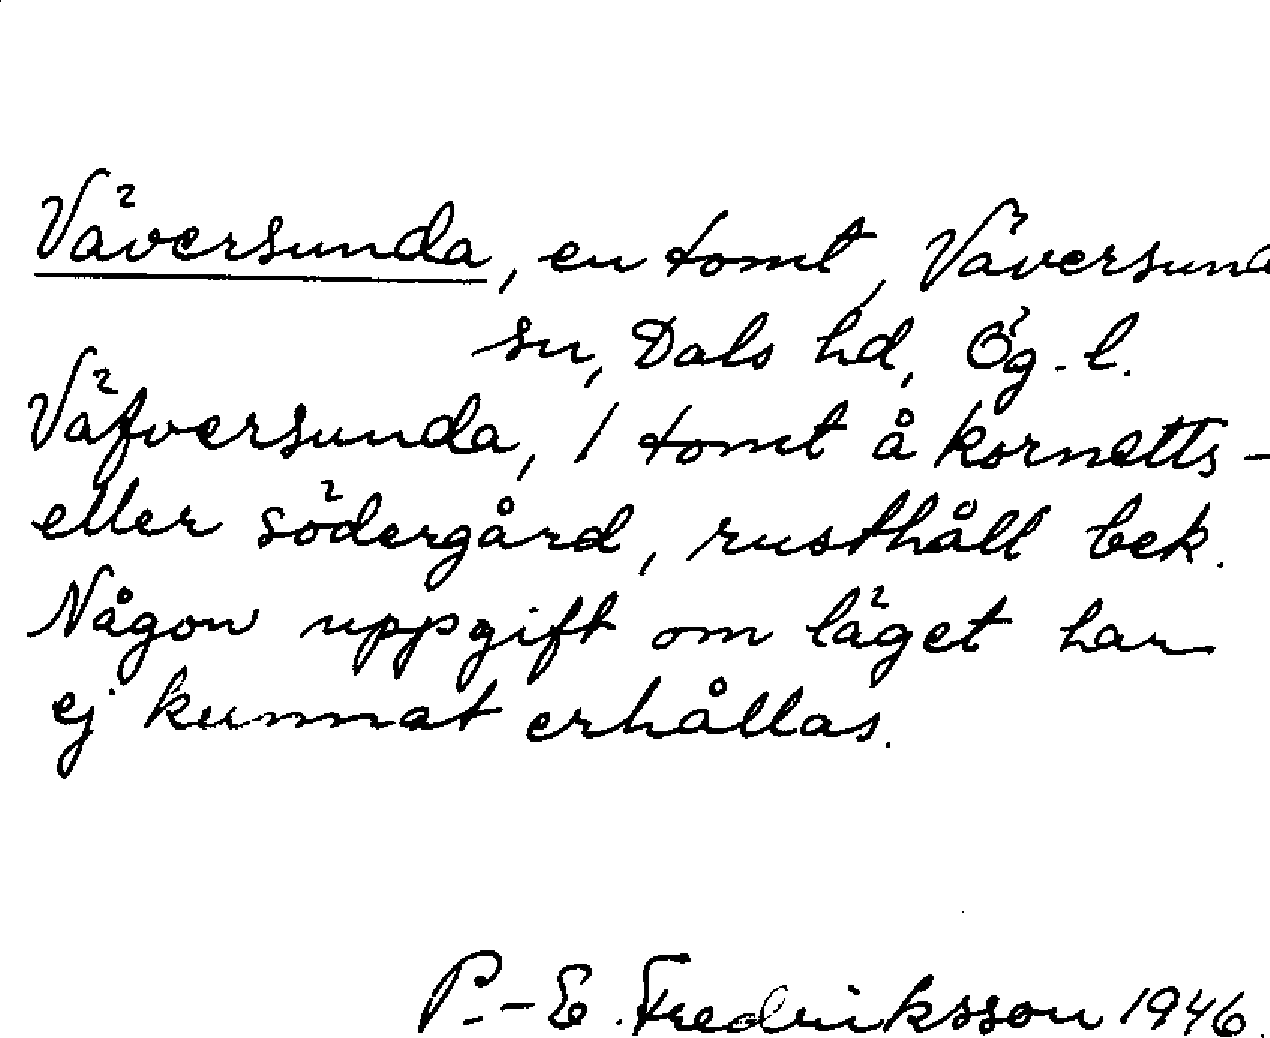 Väversunda, en tomt, Väversund
sn, Dals hd, Ög. l.
Väfversunda, 1 tomt å kornetts-
eller södergård, rusthåll bek.
Någon uppgift om läget har
ej kunnat erhållas.
P.-E. Fredriksson 1946.